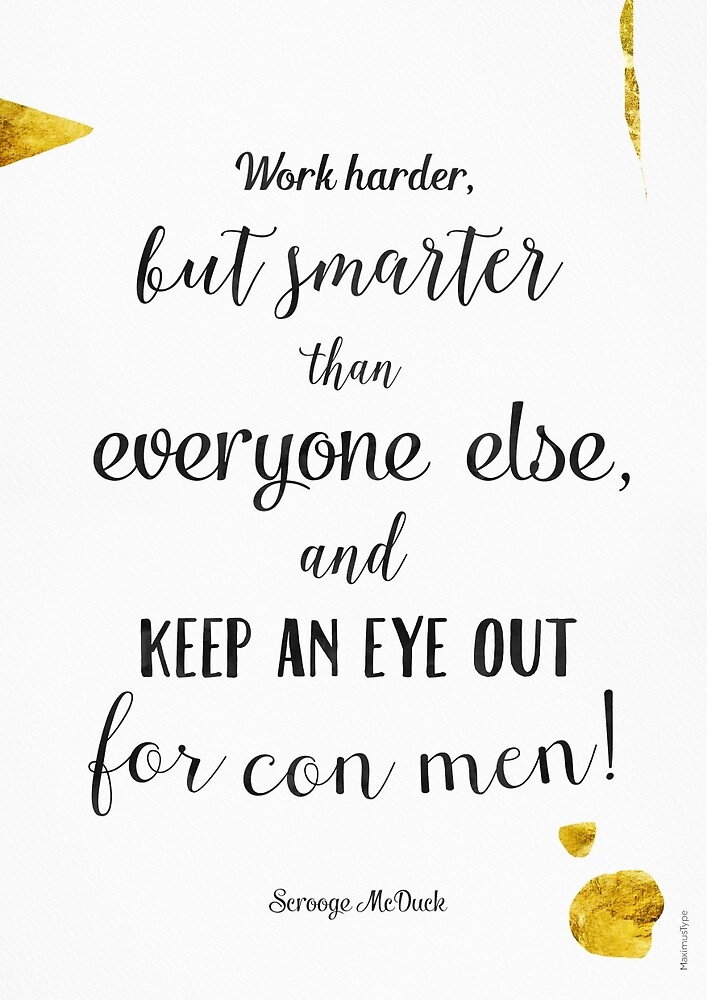 Work harder,
but smarter
than
everyone else,
and
KEEP AN EYE OUT
for con men!
Scrooge McDuck
MaximusType